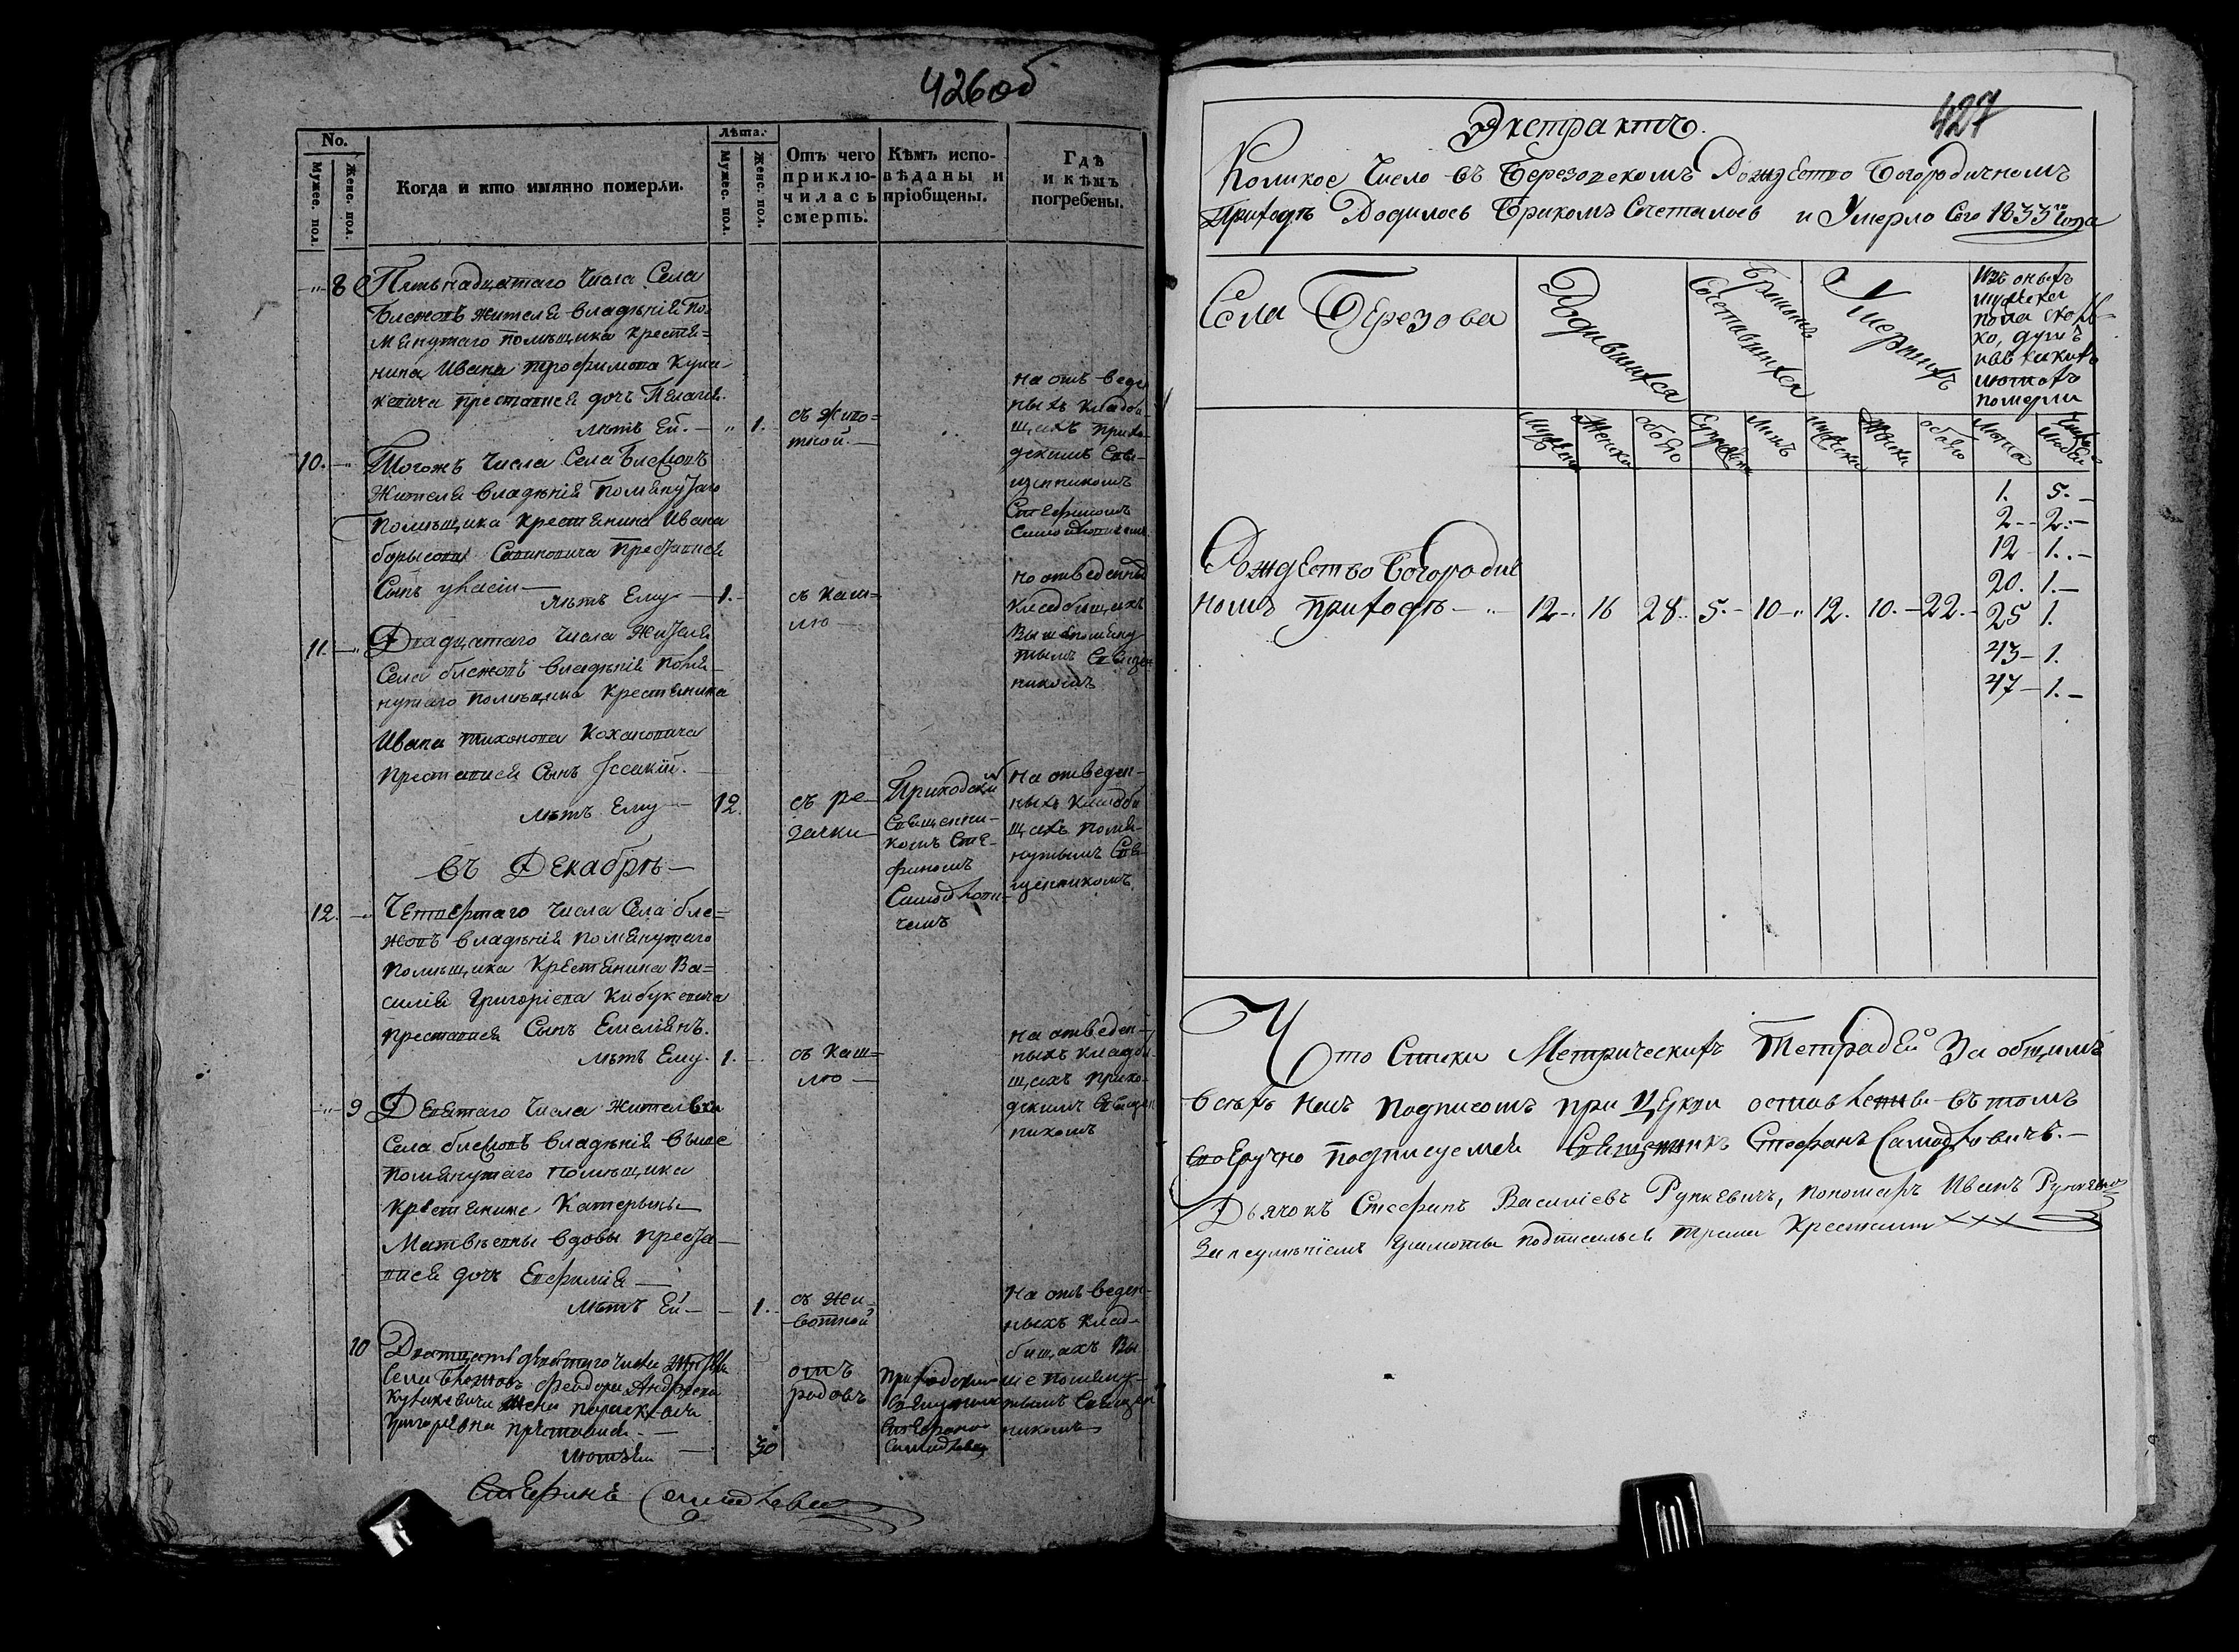 426об
No.
Мужес. пол.
Женс. пол.
Когда и кто имянно померли.
Лѣта.
Мужес. пол.
Женс. пол.
Отъ чего приключилась смерть.
Кѣмъ исповѣданы и пріобщены.
Гдѣ и кѣмъ погребены.
8
Пятьнадцатаго Числа Села
Блежовъ жителя владѣнія По-
мянутаго помѣщика крестя=
нина Ивана Трофимова
преставися дочъ Пелагія.
лѣтъ Ей. — " 1.
съ живо=
тной. —
на отъ веден
ныхъ кладби-
щахъ прихо-
дскимъ Свя-
щенникомъ
Стефаномъ
10.
Тогожъ Числа Села Блежовъ
Жителя владѣнія Помянутаго
Помѣщика Крестянина Ивана
борысова Савиковича Преставися
Сынъ
лѣтъ Ему — 1.
съ каш=
лю —
на отведенны
кладбищахъ
Вышепомяну
тымъ Священ
никомъ
11.
Двадцатаго Числа Жителя
Села блежовъ владѣнія помя-
нутаго помѣщика Крестянина
Ивана Тихонова Кохановича
преставися Сынъ Іссакій. —
лѣтъ Ему — 12.
съ ре-
зачки —
Приходскимъ
Священни-
комъ Сте-
фаномъ
На отведен-
ныхъ кладби
щахъ помя-
нутымъ Свя-
щенникомъ
въ Декабрѣ —
12.
Четвертаго Числа Села бле=
жовъ владѣнія помянутаго
помѣщика Крестянина Ва=
силія Григоріева Кибукевича
преставися Сынъ Емеліянъ.
лѣтъ Ему. 1.
съ каш=
лю —
на отведен-
ныхъ кладби-
щахъ прихо-
дскимъ Священ
никомъ
9
Девятаго Числа жителвки
Села блежовъ владѣнія выше
помянутаго помѣщика
Крестянине Катерыны
Матвѣевны вдовы преста-
вися дочъ Евфимія —
лѣтъ Ей — 1.
съ жи-
вотной
На отъ веден-
ныхъ клад-
бищахъ Вы
ше помяну-
тымъ Священ
никомъ
10
Дватцать девятаго числа
Села Блежовъ Феодора Андреева
жена
Григоріевна преставися. —
30
отъ
родовъ
Стефанъ
427
Экстрактъ.
Коликое Число въ Березовскомъ Рождество Богородичномъ
Приходѣ Родилось Бракомъ Сочеталось и Умерло Сего 1833го года
Села Березова
Родившихся
Бракомъ
Сочетавшихся
Умершихъ
Изъ оныхъ
мужеска
пола сколь-
ко, душъ
въ какихъ
лютахъ
померли
Мужеска
Женска
обоего
Лицъ
Мужеска
Женска
обоего
Люта
Рождество Богородич
номъ приходѣ — 12 16 28. 5. 10 12. 10. 22.
1. 5. —
2 — 2. —
12 1. —
20. 1. —
25 1.
43 — 1.
47 — 1. —
Что Стики Метрическихъ Тетрадей За общимъ
всѣхъ насъ подписомъ при Церкви оставлены въ томъ
своеручно подписуемся Священникъ Стефанъ
Дьячокъ Стефанъ Василіевъ Рункевичъ, пономаръ Иванъ
За неумѣніемъ грамоты подписалься трема Крестами ххх